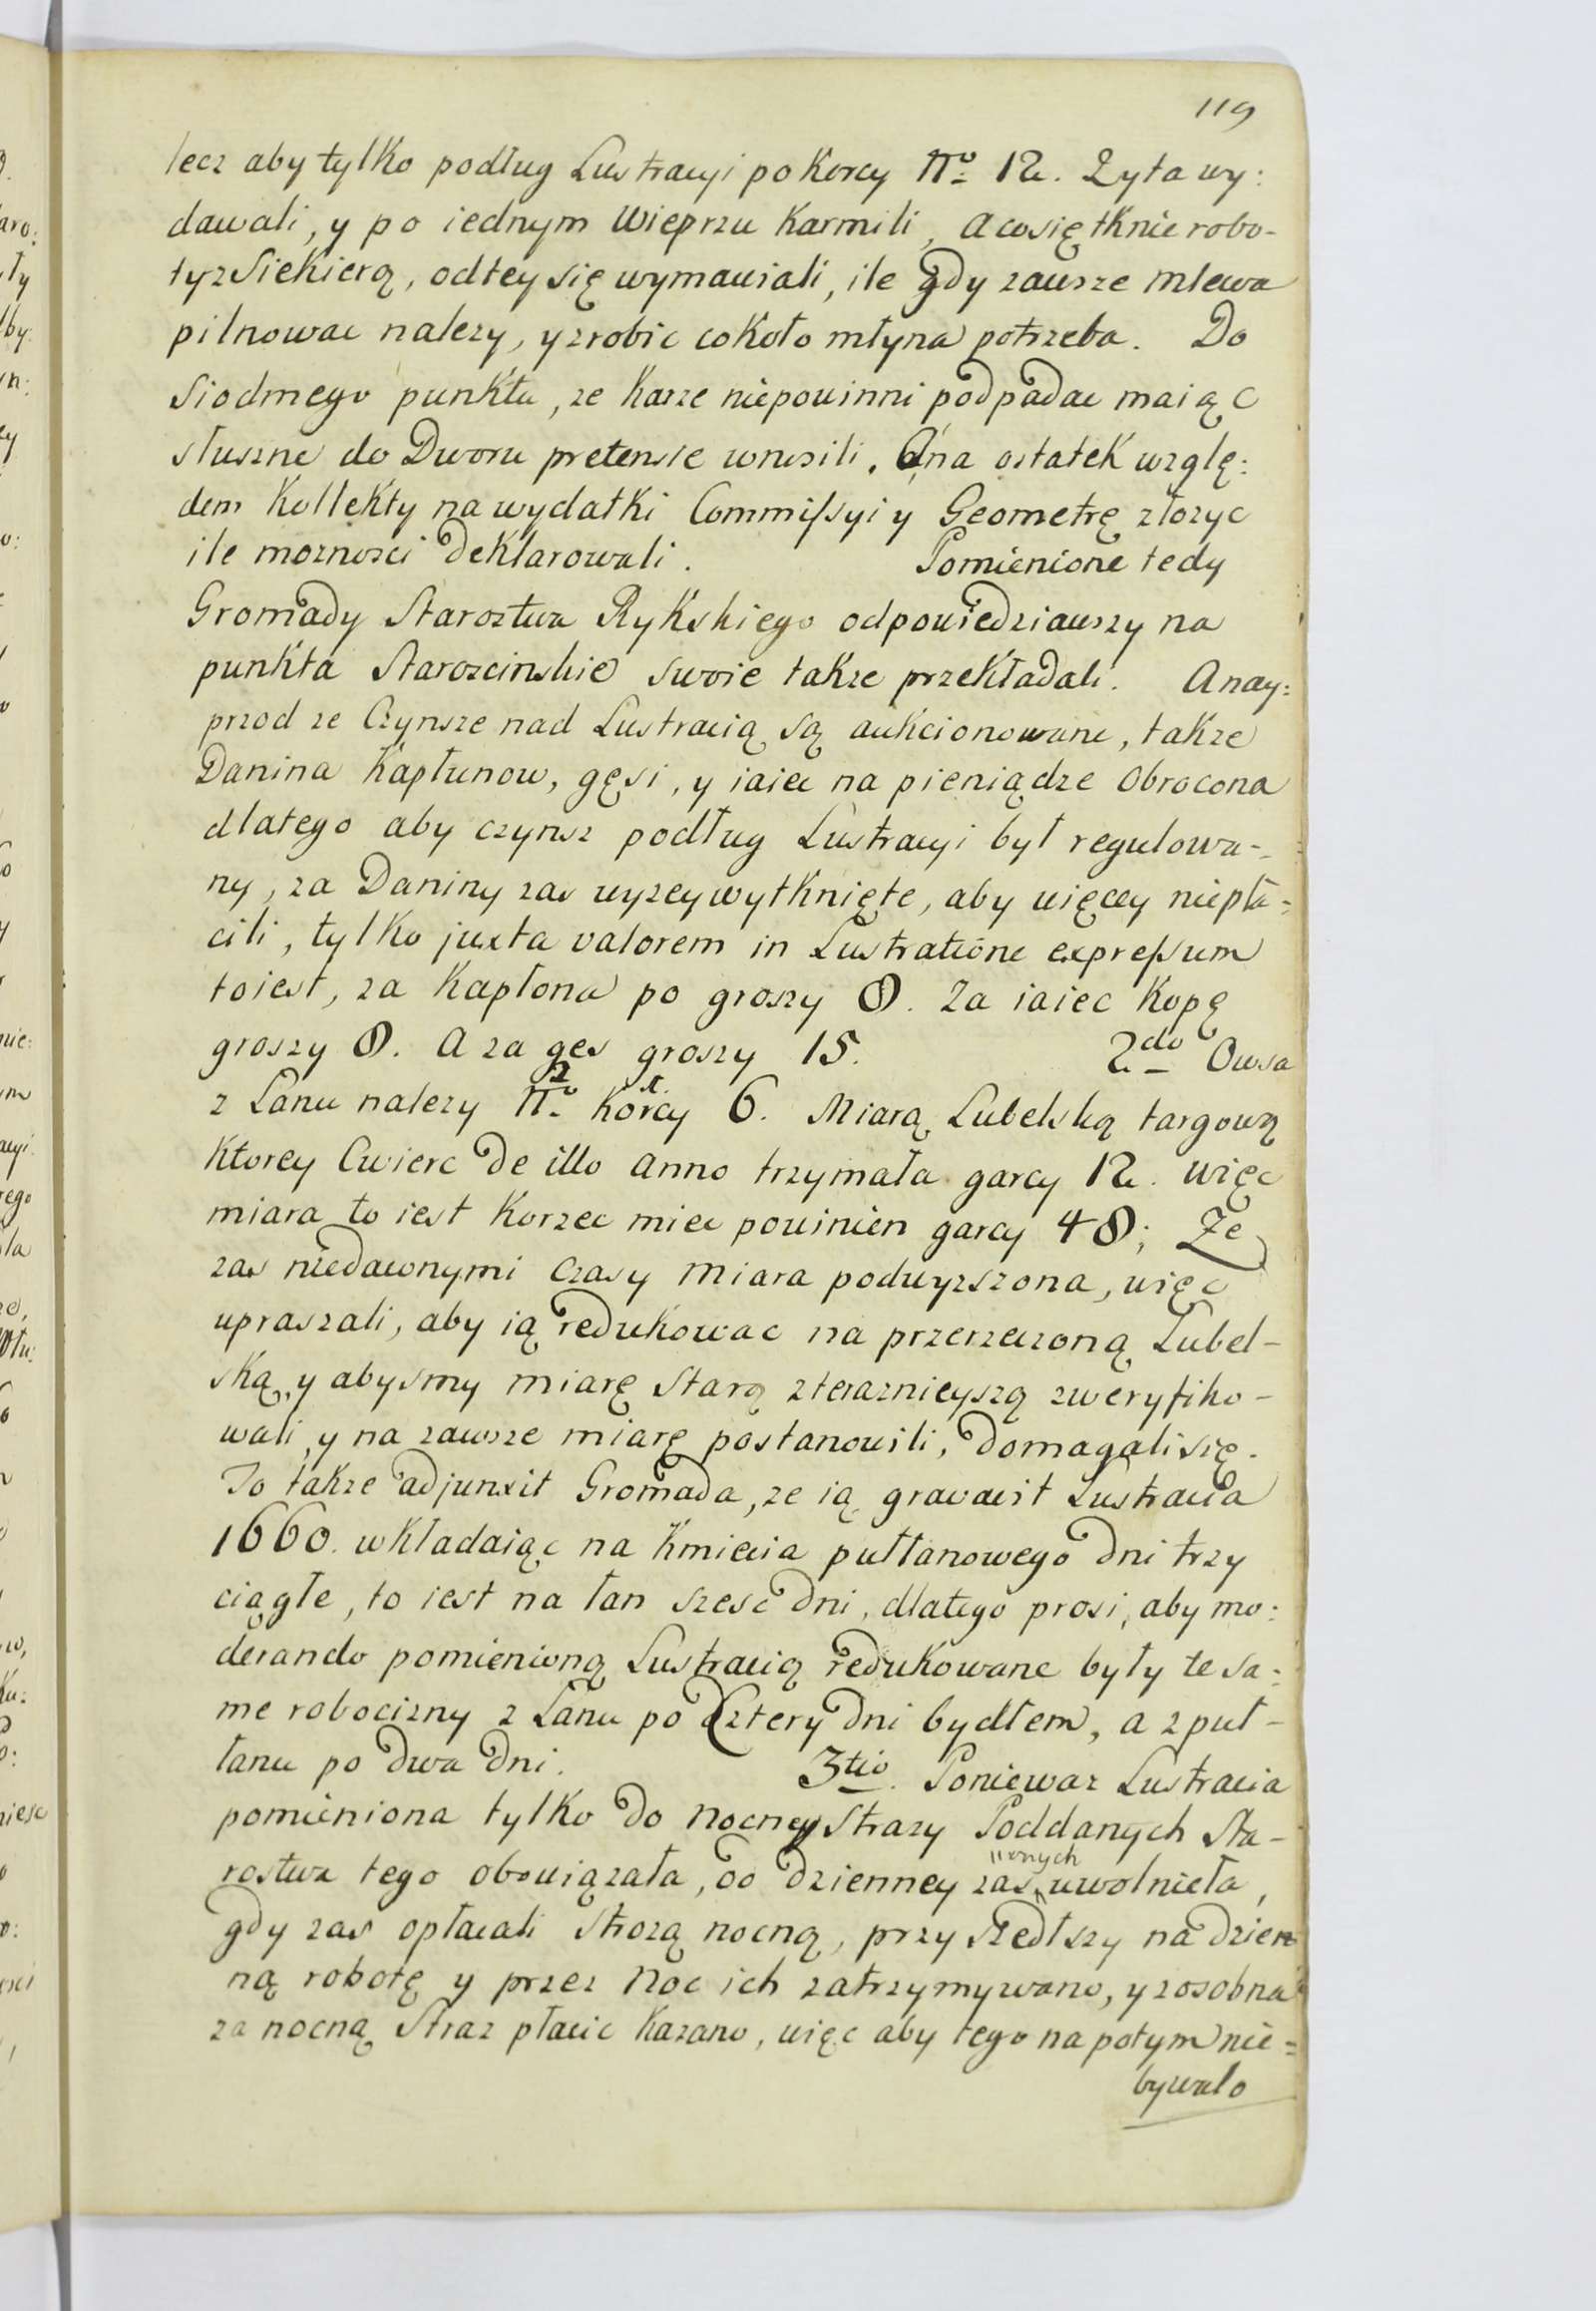 119
lecz aby tylko podług Lustracyi po Korcy Nº 12. Zyta wy:
dawali, y po iednym Wieprzu Karmili, a co się tknie robo-
ty z Siekierą, od tey się wymawiali, ile gdy zawsze mlewa
pilnowac nalezy, y zrobic co koło młyna potrzeba. Do
Siodmego punktu, ze Karze niepowinni podpadac maiąc
słuszne do Dworu pretensie wnosili. A na ostatek wzglę:
dem Kollekty na wydatki Commissyi y Geometrę złozyc
ile moznosci deklarowali. Pomienione tedy
Gromady Starostwa Rykskiego odpowiedziawszy na
punkta Staroscinskie swoie takze przekładali. A nay:
przod ze Czynsze nad Lustracią są aukcionowane, takze
Danina Kapłunow, gęsi, y iaiec na pieniądze obrocona
dlatego aby czynsz podług Lustracyi był regulowa-
ny, za Daniny zas wyzey wytknięte, aby więcey niepła=
cili, tylko juxta valorem in Lustratione expressum
to iest, za Kapłona po groszy 8. Za iaiec Kopę
groszy 8. A za ges groszy 15. 2do Owsa
z Lanu nalezy Nº Korcy 6. Miarą Lubelską targową
Ktorey Cwierc de illo anno trzymała garcy 12. więc
miara to iest Korzec miec powinien garcy 48; Ze
zas niedawnymi czasy miara podwyzszona, więc
upraszali, aby ią redukowac na przerzeczoną Lubel-
ską, y abysmy miarę starą z teraznieyszą zweryfiko-
wali, y na zawsze miarę postanowili, domagali się.
To takze adjunxit Gromada, ze ią gravavit Lustracia
1660. wkładaiąc na Kmiecia pułłanowego dni trzy
ciągłe, to iest na łan szesc dni, dlatego prosi, aby mo:
derando pomienioną Lustracią redukowane były te sa:
me robocizny z Lanu po Cztery dni bydłem, a z puł-
łanu po dwa dni. 3tio. Poniewaz Lustracia
pomieniona tylko do nocney Strazy Poddanych Sta-
rostwa tego obowiązała, od dzienney zas uwolnieła,
gdy zas opłacali Strozą nocną, przyszedłszy na dzien
ną robotę y przez noc ich zatrzymywano, y zosobna
za nocną Straz płacic Kazano, więc aby tego na potym nie=
bywało